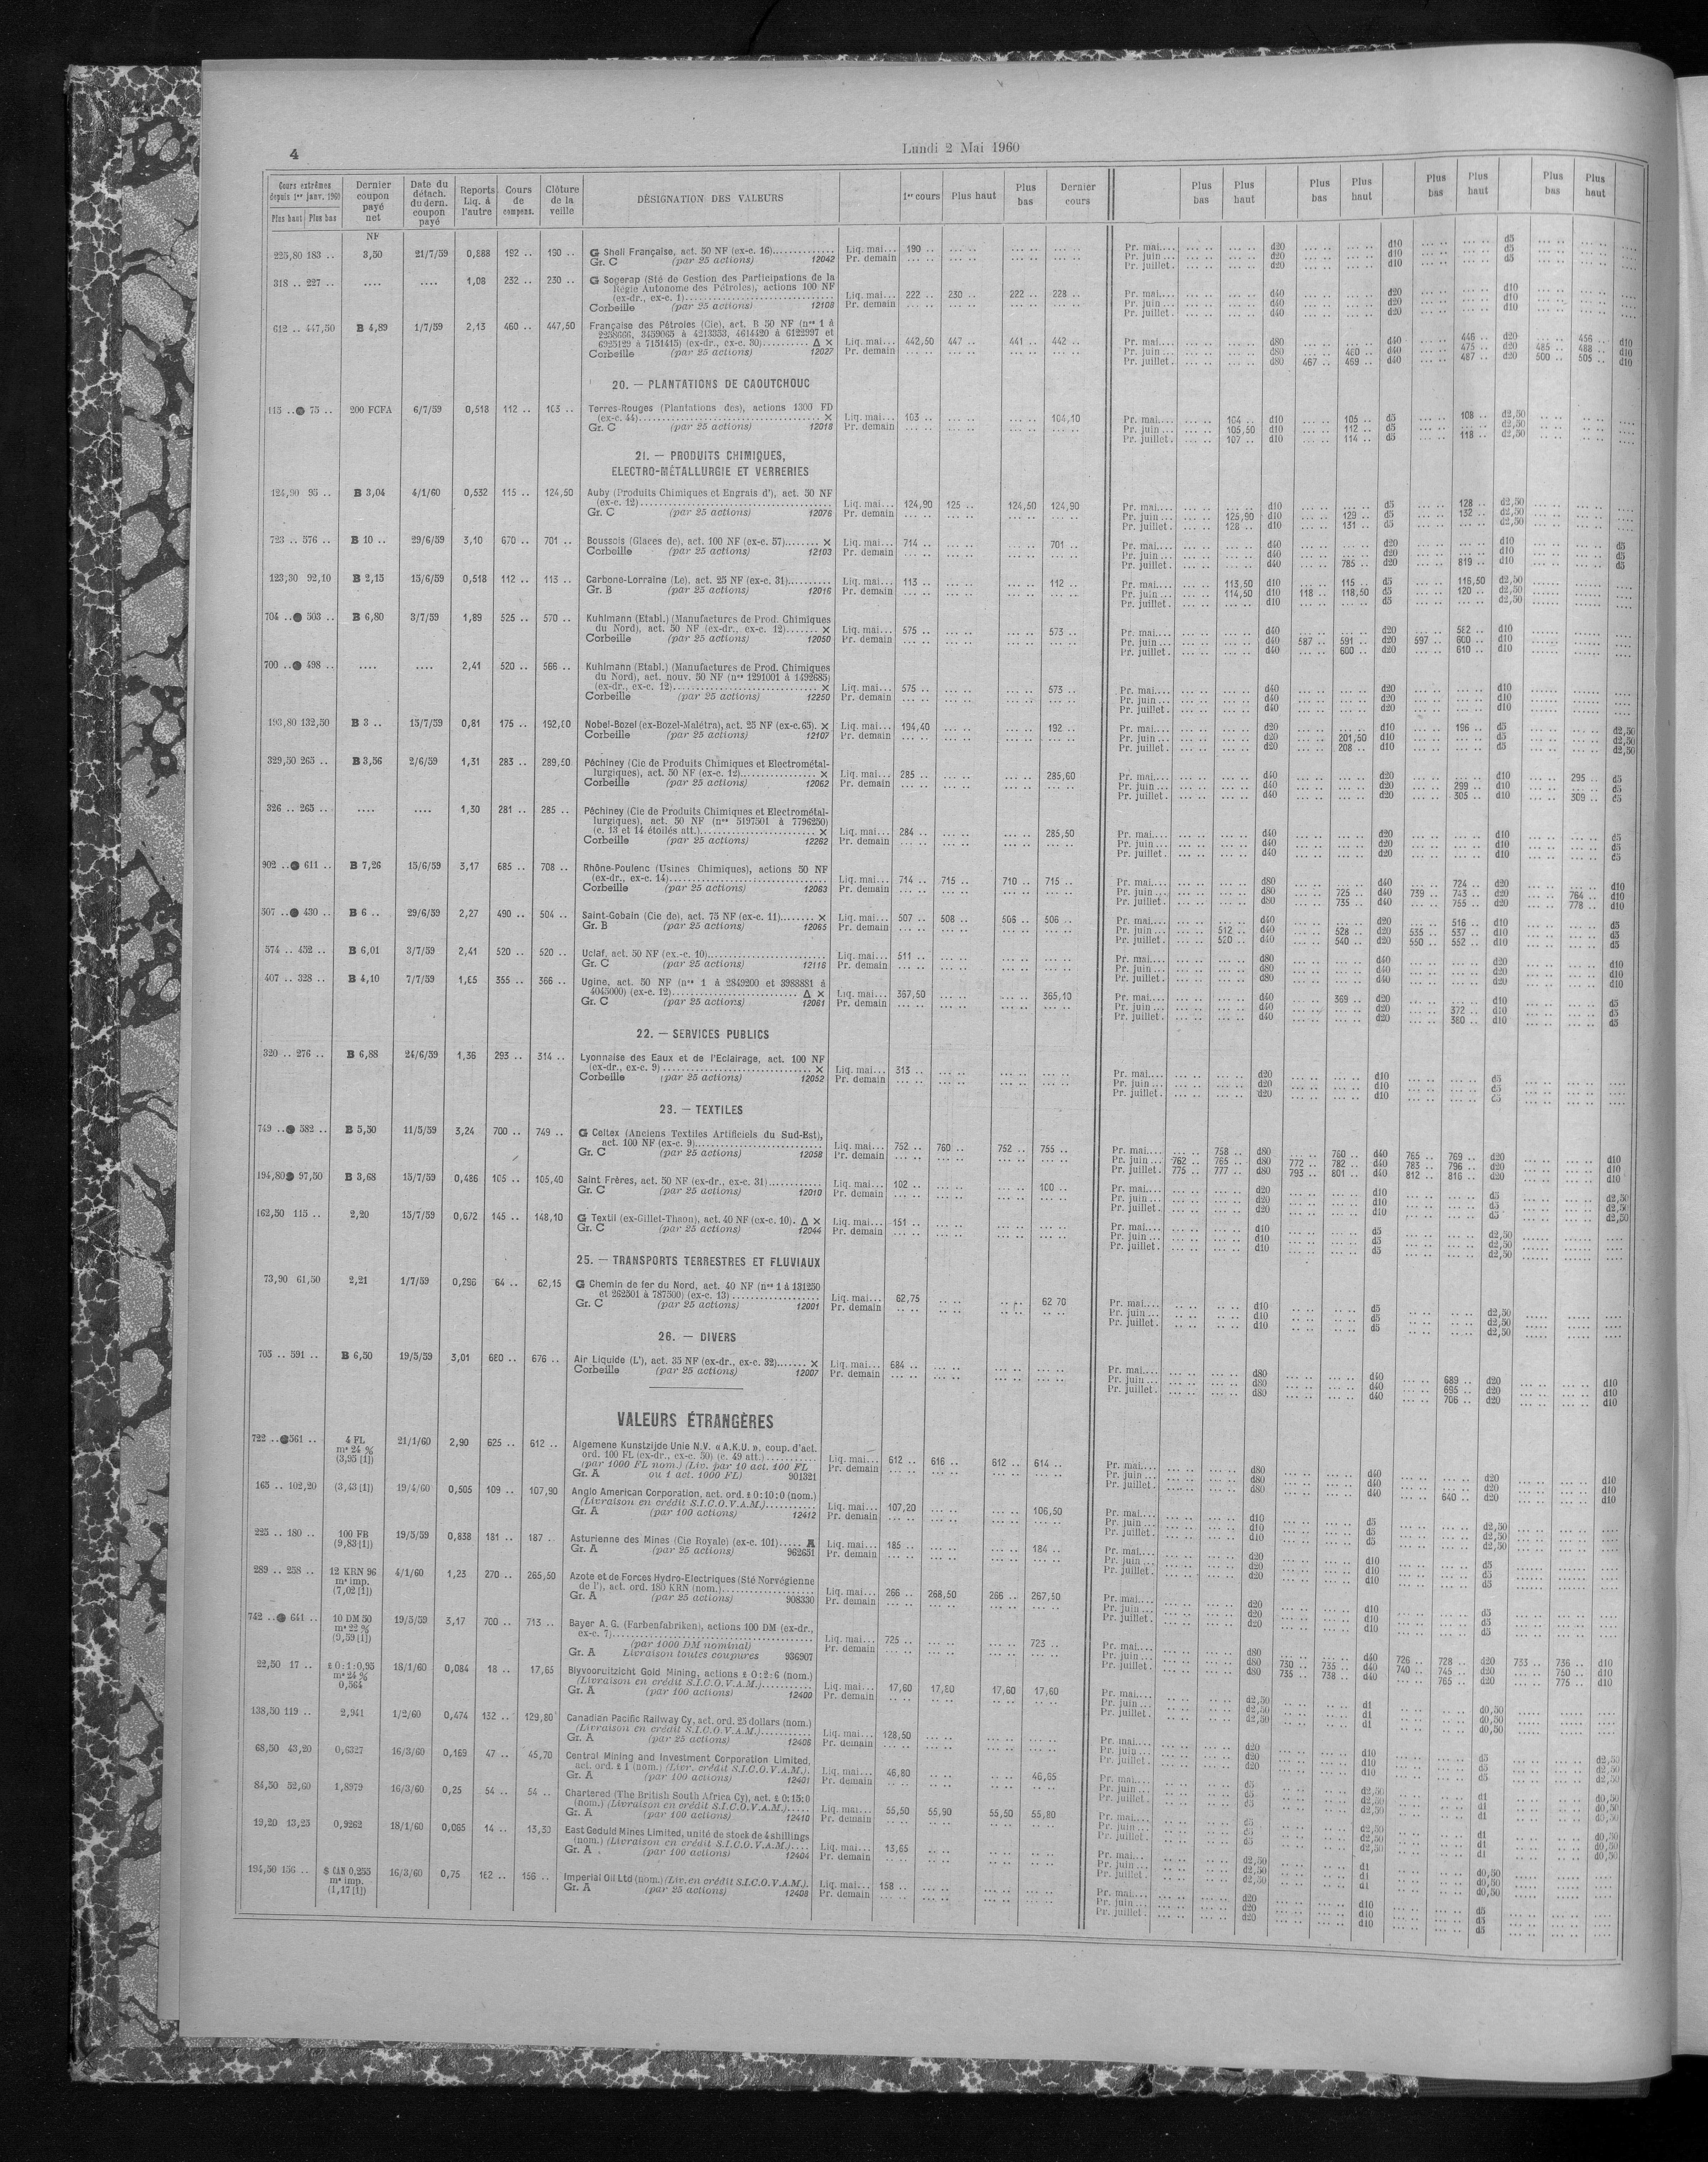 4
Lundi 2 Mai 1960
Cours extrêmes depuis 1er janv. 1960 Plus haut Plus bas | Dernier coupon payé net | Date du détach. du dern. coupon payé | Reports Liq. à l'autre | Cours de compens. | Clôture de la veille | DÉSIGNATION DES VALEURS | 1er cours | Plus haut | Plus bas | Dernier cours | Plus bas | Plus haut | Plus bas | Plus haut | Plus bas | Plus haut | Plus bas | Plus haut
NF
225,80 183 .. 3,50 21/7/59 0,888 192 .. 190 .. G Shell Française, act. 50 NF (ex-c. 16) Liq. mai... 190 .. Pr. mai.... d20 d10 d5
Gr. C (par 25 actions) 12042 Pr. demain Pr. juin... d20 d10 d5
Pr. juillet. d20 d10 d5
318 .. 227 .. .... .... 1,08 232 .. 230 .. G Sogerap (Sté de Gestion des Participations de la
Régie Autonome des Pétroles), actions 100 NF
(ex-dr., ex-c. 1) Liq. mai... 222 .. 230 .. 222 .. 228 .. Pr. mai.... d40 d20 d10
Corbeille (par 25 actions) 12108 Pr. demain Pr. juin... d40 d20 d10
Pr. juillet. d40 d20 d10
612 .. 447,50 B 4,89 1/7/59 2,13 460 .. 447,50 Française des Pétroles (Cie), act. B 50 NF (nos 1 à
2258666, 3459065 à 4213333, 4614420 à 6122997 et
6923129 à 7151415) (ex-dr., ex-c. 30) Δ × Liq. mai... 442,50 447 .. 441 .. 442 .. Pr. mai.... d80 d40 446 .. d20 456 .. d10
Corbeille (par 25 actions) 12027 Pr. demain Pr. juin... d80 460 .. d40 475 .. d20 485 .. 488 .. d10
Pr. juillet. d80 467 .. 469 .. d40 487 .. d20 500 .. 505 .. d10
20. — PLANTATIONS DE CAOUTCHOUC
115 .. 75 .. 200 FCFA 6/7/59 0,518 112 .. 103 .. Terres-Rouges (Plantations des), actions 1300 FD
(ex-c. 44) × Liq. mai... 103 .. 104,10 Pr. mai.... 104 .. d10 105 .. d5 108 .. d2,50
Gr. C (par 25 actions) 12018 Pr. demain Pr. juin... 105,50 d10 112 .. d5 d2,50
Pr. juillet. 107 .. d10 114 .. d5 118 .. d2,50
21. — PRODUITS CHIMIQUES,
ELECTRO-MÉTALLURGIE ET VERRERIES
124,90 95 .. B 3,04 4/1/60 0,532 115 .. 124,50 Auby (Produits Chimiques et Engrais d'), act. 50 NF
(ex-c. 12) Liq. mai... 124,90 125 .. 124,50 124,90 Pr. mai.... d10 d5 128 .. d2,50
Gr. C (par 25 actions) 12076 Pr. demain Pr. juin... 125,90 d10 129 .. d5 132 .. d2,50
Pr. juillet. 128 .. d10 131 .. d5 d2,50
723 .. 576 .. B 10 .. 29/6/59 3,10 670 .. 701 .. Boussois (Glaces de), act. 100 NF (ex-c. 57) × Liq. mai... 714 .. 701 .. Pr. mai.... d40 d20 d10 d5
Corbeille (par 25 actions) 12103 Pr. demain Pr. juin... d40 d20 d10 d5
Pr. juillet. d40 785 .. d20 819 .. d10 d5
123,30 92,10 B 2,15 15/6/59 0,518 112 .. 113 .. Carbone-Lorraine (Le), act. 25 NF (ex-c. 31) Liq. mai... 113 .. 112 .. Pr. mai.... 113,50 d10 115 .. d5 116,50 d2,50
Gr. B (par 25 actions) 12016 Pr. demain Pr. juin... 114,50 d10 118 .. 118,50 d5 120 .. d2,50
Pr. juillet. d10 d5 d2,50
704 .. 503 .. B 6,80 3/7/59 1,89 525 .. 570 .. Kuhlmann (Etabl.) (Manufactures de Prod. Chimiques
du Nord), act. 50 NF (ex-dr., ex-c. 12) × Liq. mai... 575 .. 573 .. Pr. mai.... d40 d20 582 .. d10
Corbeille (par 25 actions) 12050 Pr. demain Pr. juin... d40 587 .. 591 .. d20 597 .. 600 .. d10
Pr. juillet. d40 600 .. d20 610 .. d10
700 .. 498 .. .... .... 2,41 520 .. 566 .. Kuhlmann (Etabl.) (Manufactures de Prod. Chimiques
du Nord), act. nouv. 50 NF (nos 1291001 à 1492685)
(ex-dr., ex-c. 12) × Liq. mai... 575 .. 573 .. Pr. mai.... d40 d20 d10
Corbeille (par 25 actions) 12250 Pr. demain Pr. juin... d40 d20 d10
Pr. juillet. d40 d20 d10
193,80 132,50 B 3 .. 15/7/59 0,81 175 .. 192,00 Nobel-Bozel (ex-Bozel-Malétra), act. 25 NF (ex-c. 65). × Liq. mai... 194,40 192 .. Pr. mai.... d20 d10 196 .. d5 d2,50
Corbeille (par 25 actions) 12107 Pr. demain Pr. juin... d20 201,50 d10 d5 d2,50
Pr. juillet. d20 208 .. d10 d5 d2,50
329,50 265 .. B 3,56 2/6/59 1,31 283 .. 289,50 Péchiney (Cie de Produits Chimiques et Electrométal-
lurgiques), act. 50 NF (ex-c. 12) × Liq. mai... 285 .. 285,60 Pr. mai.... d40 d20 d10 295 .. d5
Corbeille (par 25 actions) 12062 Pr. demain Pr. juin... d40 d20 299 .. d10 d5
Pr. juillet. d40 d20 305 .. d10 309 .. d5
326 .. 265 .. .... .... 1,30 281 .. 285 .. Péchiney (Cie de Produits Chimiques et Electrométal-
lurgiques), act. 50 NF (nos 5197501 à 7796250)
(c. 13 et 14 étoilés att.) × Liq. mai... 284 .. 285,50 Pr. mai.... d40 d20 d10 d5
Corbeille (par 25 actions) 12262 Pr. demain Pr. juin... d40 d20 d10 d5
Pr. juillet. d40 d20 d10 d5
902 .. 611 .. B 7,26 15/6/59 3,17 685 .. 708 .. Rhône-Poulenc (Usines Chimiques), actions 50 NF
(ex-dr., ex-c. 14) Liq. mai... 714 .. 715 .. 710 .. 715 .. Pr. mai.... d80 d40 724 .. d20 d10
Corbeille (par 25 actions) 12063 Pr. demain Pr. juin... d80 725 .. d40 739 .. 743 .. d20 764 .. d10
Pr. juillet. d80 735 .. d40 755 .. d20 778 .. d10
507 .. 430 .. B 6 .. 29/6/59 2,27 490 .. 504 .. Saint-Gobain (Cie de), act. 75 NF (ex-c. 11) × Liq. mai... 507 .. 508 .. 506 .. 506 .. Pr. mai.... d40 d20 516 .. d10 d5
Gr. B (par 25 actions) 12065 Pr. demain Pr. juin... 512 .. d40 528 .. d20 535 .. 537 .. d10 d5
Pr. juillet. 520 .. d40 540 .. d20 550 .. 552 .. d10 d5
574 .. 452 .. B 6,01 3/7/59 2,41 520 .. 520 .. Uclaf, act. 50 NF (ex-c. 10) Liq. mai... 511 .. Pr. mai.... d80 d40 d20 d10
Gr. C (par 25 actions) 12116 Pr. demain Pr. juin... d80 d40 d20 d10
Pr. juillet. d80 d40 d20 d10
407 .. 328 .. B 4,10 7/7/59 1,65 355 .. 366 .. Ugine, act. 50 NF (nos 1 à 2849200 et 3988881 à
4045000) (ex-c. 12) Δ × Liq. mai... 367,50 365,10 Pr. mai.... d40 369 .. d20 d10 d5
Gr. C (par 25 actions) 12061 Pr. demain Pr. juin... d40 d20 372 .. d10 d5
Pr. juillet. d40 d20 380 .. d10 d5
22. — SERVICES PUBLICS
320 .. 276 .. B 6,88 24/6/59 1,36 293 .. 314 .. Lyonnaise des Eaux et de l'Eclairage, act. 100 NF
(ex-dr., ex-c. 9) × Liq. mai... 313 .. Pr. mai.... d20 d10 d5
Corbeille (par 25 actions) 12052 Pr. demain Pr. juin... d20 d10 d5
Pr. juillet. d20 d10 d5
23. — TEXTILES
749 .. 582 .. B 5,50 11/5/59 3,24 700 .. 749 .. G Celtex (Anciens Textiles Artificiels du Sud-Est),
act. 100 NF (ex-c. 9) Liq. mai... 752 .. 760 .. 752 .. 755 .. Pr. mai.... 758 .. d80 760 .. d40 765 .. 769 .. d20 d10
Gr. C (par 25 actions) 12058 Pr. demain Pr. juin... 762 .. 765 .. d80 772 .. 782 .. d40 783 .. 796 .. d20 d10
Pr. juillet. 775 .. 777 .. d80 793 .. 801 .. d40 812 .. 816 .. d20 d10
194,80 97,50 B 3,68 15/7/59 0,486 105 .. 105,40 Saint Frères, act. 50 NF (ex-dr., ex-c. 31) Liq. mai... 102 .. 100 .. Pr. mai.... d20 d10 d5 d2,50
Gr. C (par 25 actions) 12010 Pr. demain Pr. juin... d20 d10 d5 d2,50
Pr. juillet. d20 d10 d5 d2,50
162,50 115 .. 2,20 15/7/59 0,672 145 .. 148,10 G Textil (ex-Gillet-Thaon), act. 40 NF (ex-c. 10). Δ × Liq. mai... 151 .. Pr. mai.... d10 d5 d2,50
Gr. C (par 25 actions) 12044 Pr. demain Pr. juin... d10 d5 d2,50
Pr. juillet. d10 d5 d2,50
25. — TRANSPORTS TERRESTRES ET FLUVIAUX
73,90 61,50 2,21 1/7/59 0,296 64 .. 62,15 G Chemin de fer du Nord, act. 40 NF (nos 1 à 131250
et 262501 à 787500) (ex-c. 13) Liq. mai... 62,75 62 70 Pr. mai.... d10 d5 d2,50
Gr. C (par 25 actions) 12001 Pr. demain Pr. juin... d10 d5 d2,50
Pr. juillet. d10 d5 d2,50
26. — DIVERS
705 .. 591 .. B 6,50 19/5/59 3,01 680 .. 676 .. Air Liquide (L'), act. 35 NF (ex-dr., ex-c. 32) × Liq. mai... 684 .. Pr. mai.... d80 d40 689 .. d20 d10
Corbeille (par 25 actions) 12007 Pr. demain Pr. juin... d80 d40 695 .. d20 d10
Pr. juillet. d80 d40 706 .. d20 d10
VALEURS ÉTRANGÈRES
722 .. 561 .. 4 FL 21/1/60 2,90 625 .. 612 .. Algemene Kunstzijde Unie N.V. « A.K.U. », coup. d'act.
me 24 % ord. 100 FL (ex-dr., ex-c. 50) (c. 49 att.) Liq. mai... 612 .. 616 .. 612 .. 614 .. Pr. mai.... d80 d40 d20 d10
(3,95 [1]) (par 1000 FL nom.) (Liv. par 10 act. 100 FL Pr. demain Pr. juin... d80 d40 d20 d10
Gr. A ou 1 act. 1000 FL) 901321 Pr. juillet. d80 d40 640 .. d20 d10
165 .. 102,20 (3,43 [1]) 19/4/60 0,505 109 .. 107,90 Anglo American Corporation, act. ord. £ 0:10:0 (nom.)
(Livraison en crédit S.I.C.O.V.A.M.) Liq. mai... 107,20 106,50 Pr. mai.... d10 d5 d2,50
Gr. A (par 100 actions) 12412 Pr. demain Pr. juin... d10 d5 d2,50
Pr. juillet. d10 d5 d2,50
225 .. 180 .. 100 FB 19/5/59 0,838 181 .. 187 .. Asturienne des Mines (Cie Royale) (ex-c. 101) A Liq. mai... 185 .. 184 .. Pr. mai.... d20 d10 d5
(9,83 [1]) Gr. A (par 25 actions) 962651 Pr. demain Pr. juin... d20 d10 d5
Pr. juillet. d20 d10 d5
289 .. 258 .. 12 KRN 96 4/1/60 1,23 270 .. 265,50 Azote et de Forces Hydro-Electriques (Sté Norvégienne
me imp. de l'), act. ord. 180 KRN (nom.) Liq. mai... 266 .. 268,50 266 .. 267,50 Pr. mai.... d20 d10 d5
(7,02 [1]) Gr. A (par 25 actions) 908330 Pr. demain Pr. juin... d20 d10 d5
Pr. juillet. d20 d10 d5
742 .. 641 .. 10 DM 50 19/5/59 3,17 700 .. 713 .. Bayer A. G. (Farbenfabriken), actions 100 DM (ex-dr.,
me 22 % ex-c. 7) Liq. mai... 725 .. 723 .. Pr. mai.... d80 d40 726 .. 728 .. d20 733 .. 736 .. d10
(9,59 [1]) (par 1000 DM nominal) Pr. demain Pr. juin... d80 730 .. 735 .. d40 740 .. 745 .. d20 750 .. d10
Gr. A Livraison toutes coupures 936907 Pr. juillet. d80 735 .. 738 .. d40 765 .. d20 775 .. d10
22,50 17 .. £ 0:1:0,95 18/1/60 0,084 18 .. 17,65 Blyvooruitzicht Gold Mining, actions £ 0:2:6 (nom.)
me 24 % (Livraison en crédit S.I.C.O.V.A.M.) Liq. mai... 17,60 17,80 17,60 17,60 Pr. mai.... d2,50 d1 d0,50
0,564 Gr. A (par 100 actions) 12400 Pr. demain Pr. juin... d2,50 d1 d0,50
Pr. juillet. d2,50 d1 d0,50
138,50 119 .. 2,941 1/2/60 0,474 132 .. 129,80 Canadian Pacific Railway Cy, act. ord. 25 dollars (nom.)
(Livraison en crédit S.I.C.O.V.A.M.) Liq. mai... 128,50 Pr. mai.... d20 d10 d5 d2,50
Gr. A (par 25 actions) 12406 Pr. demain Pr. juin... d20 d10 d5 d2,50
Pr. juillet. d20 d10 d5 d2,50
68,50 43,20 0,6327 16/3/60 0,169 47 .. 45,70 Central Mining and Investment Corporation Limited,
act. ord. £ 1 (nom.) (Livr. crédit S.I.C.O.V.A.M.). Liq. mai... 46,80 46,65 Pr. mai.... d5 d2,50 d1 d0,50
Gr. A (par 100 actions) 12401 Pr. demain Pr. juin... d5 d2,50 d1 d0,50
Pr. juillet. d5 d2,50 d1 d0,50
84,50 52,60 1,8979 16/3/60 0,25 54 .. 54 .. Chartered (The British South Africa Cy), act. £ 0:15:0
(nom.) (Livraison en crédit S.I.C.O.V.A.M.) Liq. mai... 55,50 55,90 55,50 55,80 Pr. mai.... d5 d2,50 d1 d0,50
Gr. A (par 100 actions) 12410 Pr. demain Pr. juin... d5 d2,50 d1 d0,50
Pr. juillet. d5 d2,50 d1 d0,50
19,20 13,25 0,9262 18/1/60 0,065 14 .. 13,30 East Geduld Mines Limited, unité de stock de 4 shillings
(nom.) (Livraison en crédit S.I.C.O.V.A.M.) Liq. mai... 13,65 Pr. mai.... d2,50 d1 d0,50
Gr. A (par 100 actions) 12404 Pr. demain Pr. juin... d2,50 d1 d0,50
Pr. juillet. d2,50 d1 d0,50
194,50 156 .. $ CAN 0,255 16/3/60 0,75 162 .. 156 .. Imperial Oil Ltd (nom.) (Liv. en crédit S.I.C.O.V.A.M.). Liq. mai... 158 .. Pr. mai.... d20 d10 d5
me imp. Gr. A (par 25 actions) 12408 Pr. demain Pr. juin... d20 d10 d5
(1,17 [1]) Pr. juillet. d20 d10 d5